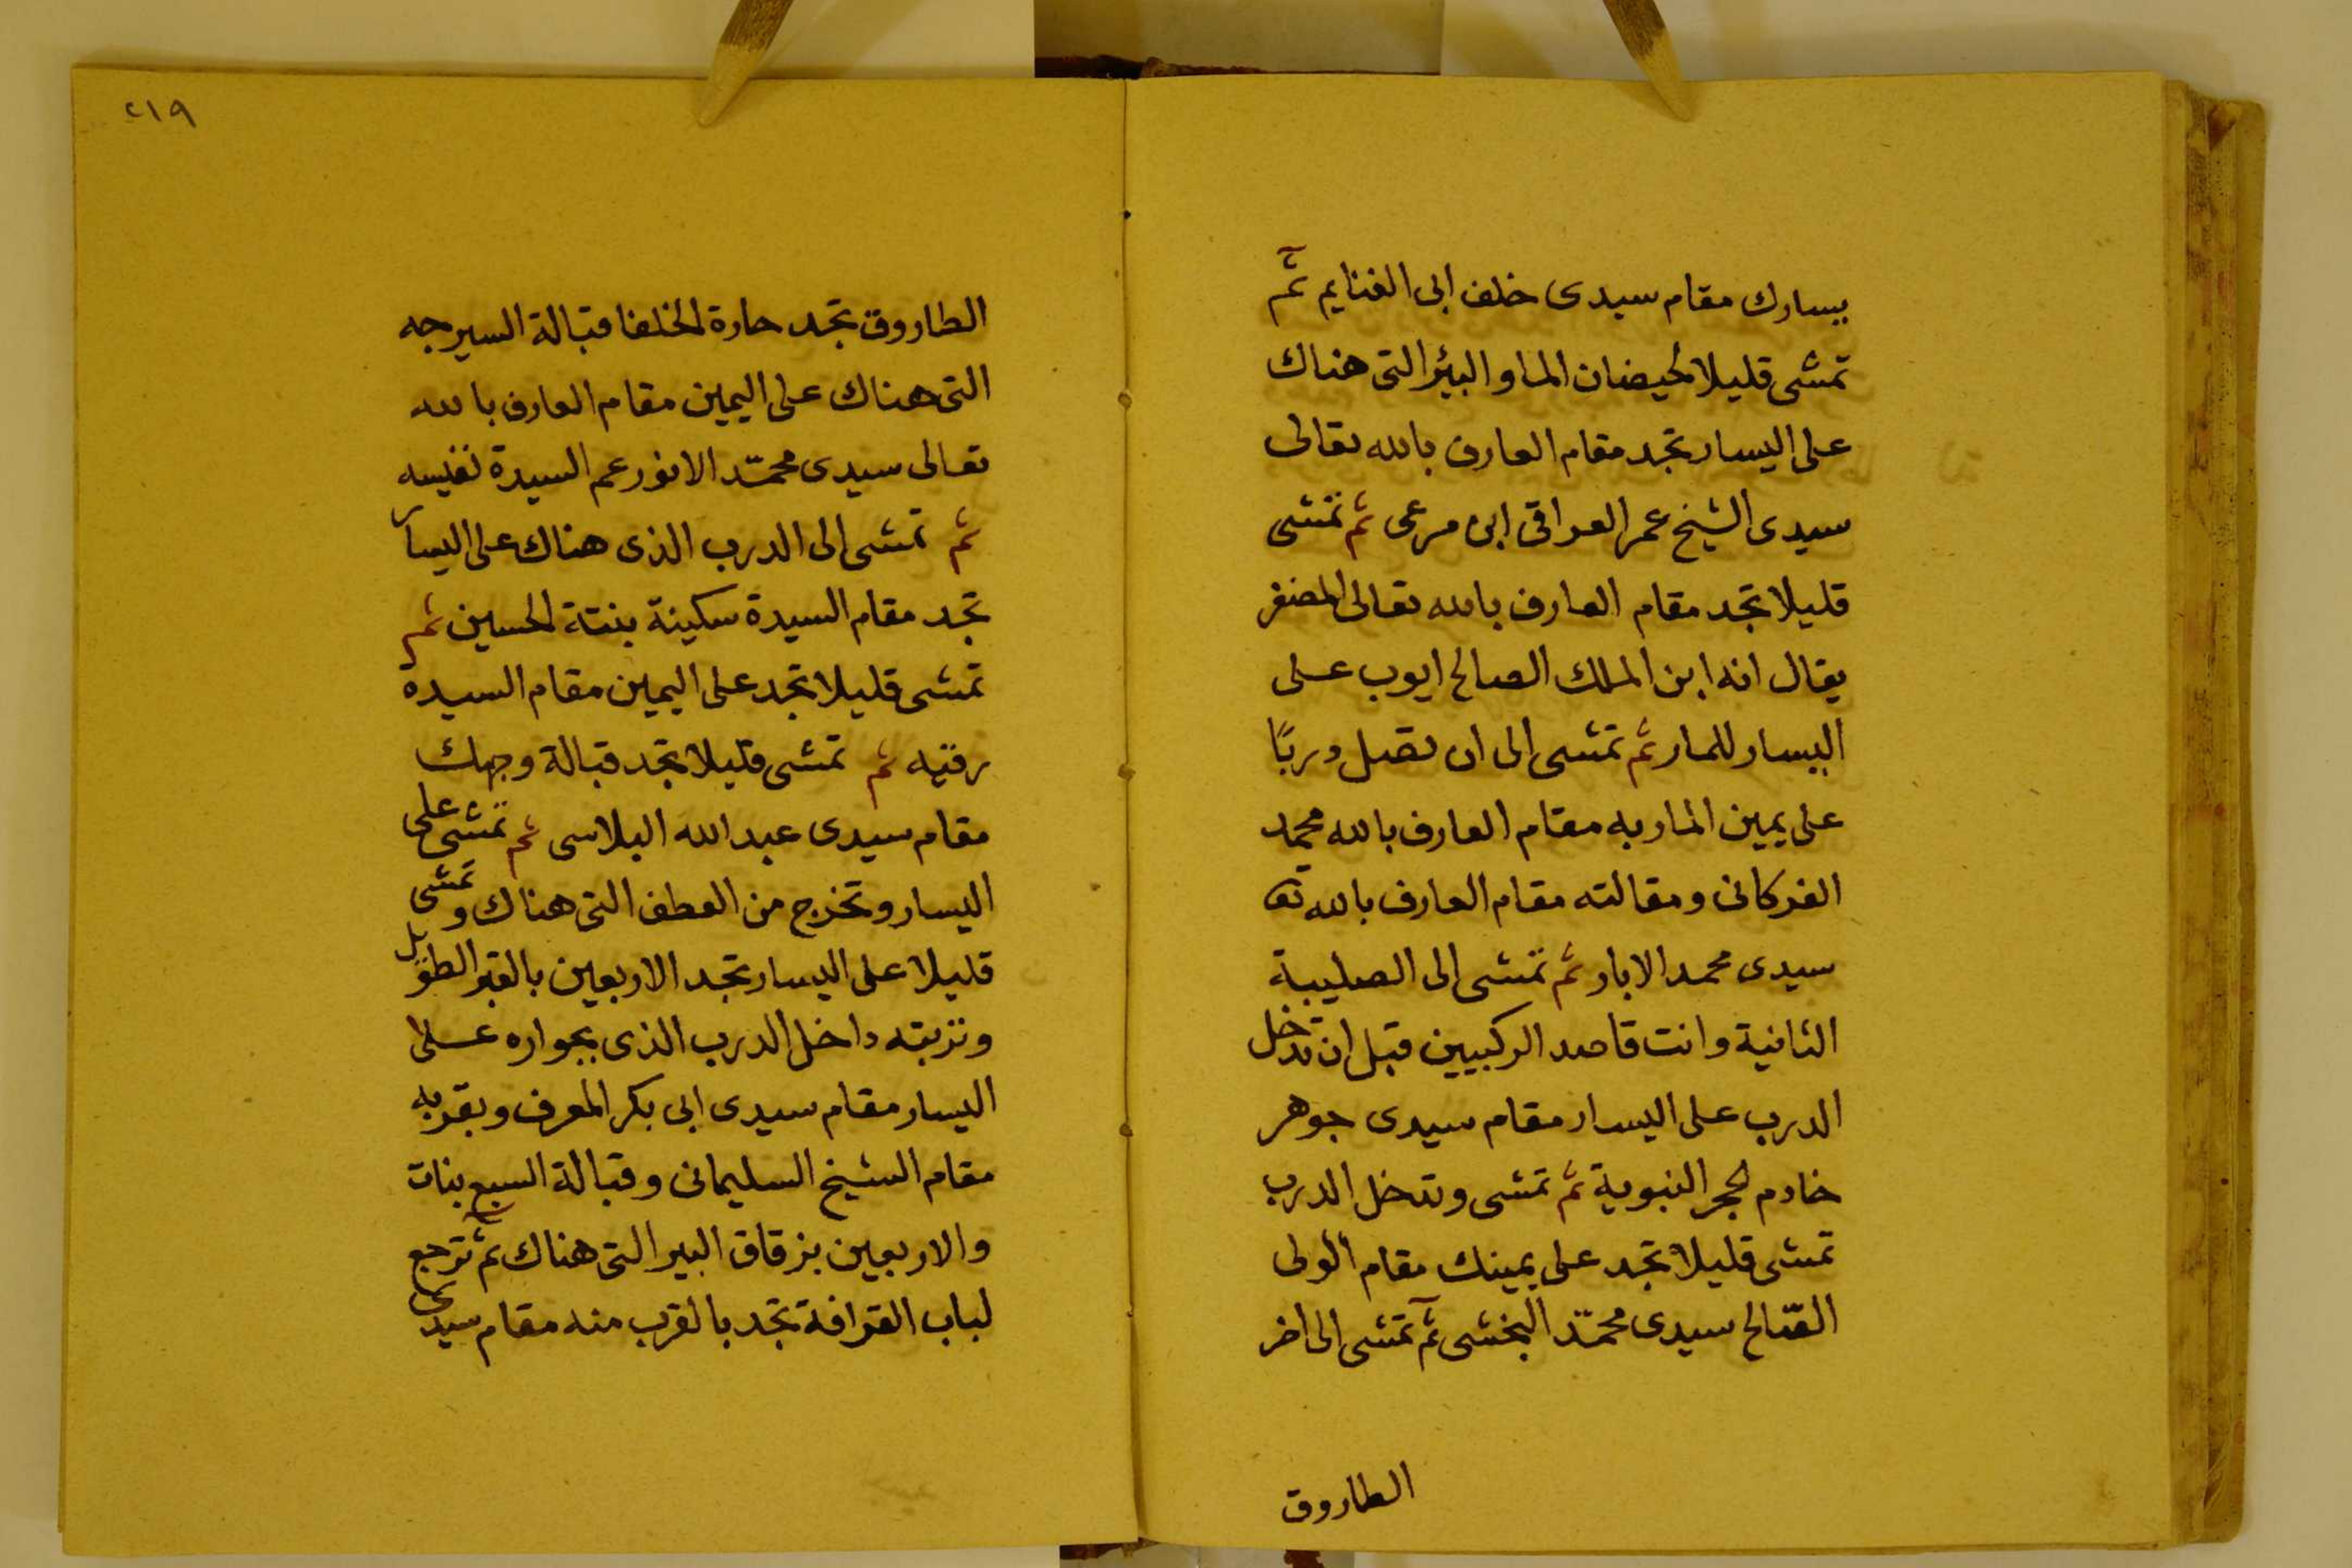 يسارك مقام سيدى خلف ابى الغنايم ثم
تمشى قليلا لحيضان الما و البئر التى هناك
على اليسار تجد مقام العارف بالله تعالى
سيدى الشيخ عمر العراقى ابن مرعى ثم تمشى
قليلا تجد مقام العارف بالله تعالى المضفر
يقال انه ابن الملك الصالح ايوب على
اليسار للمار ثم تمشى الى ان تصل دربًا
على يمين الماربه مقام العارف بالله محمد
الفركانى ومقالته مقام العارف بالله تعا
سيدى محمد الابار ثم تمشى الى الصليبة
الثانية وانت قاصد الركبيين قبل ان تدخل
الدرب على اليسار مقام سيدى جوهر
خادم الحجر النبوية ثم تمشى وتدخل الدرب
تمشى قليلا تجد على يمينك مقام الولى
الصّالح سيدى محمّد البخشى ثم تمشى الى اخر
الطاروق
٢١٩
الطاروق تجد حارة الخلفا قبالة السيرجه
التى هناك على اليمين مقام العارف بالله
تعالى سيدى محمّد الانور عم السيدة نفيسه
ثم تمشى الى الدرب الذى هناك على اليسار
تجد مقام السيدة سكينة بنتة الحسين ثم
تمشى قليلا تجد على اليمين مقام السيدة
رقيه ثم تمشى قليلا تجد قبالة وجهك
مقام سيدى عبد الله البلاسى ثم تمشى على
اليسار وتخرج من العطف التى هناك وتمشى
قليلا على اليسار تجد الاربعين بالقبو الطويل
وتربته داخل الدرب الذى بجواره على
اليسار مقام سيدى ابى بكر المعرف وبقربه
مقام الشيخ السليمانى وقبالة السبع بنات
والاربعين بزقاق البير التى هناك ثم ترجع
لباب القرافة تجد بالقرب منه مقام سيدى